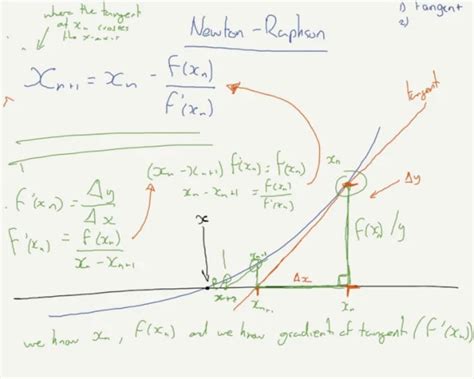 where the tangent
at xₙ crosses
the x-axis
Newton-Raphson
1) tangent
2)
xₙ₊₁ = xₙ - f(xₙ)/f'(xₙ)
tangent
(xₙ - xₙ₊₁) f'(xₙ) = f(xₙ)
xₙ - xₙ₊₁ = f(xₙ)/f'(xₙ)
xₙ
Δy
f'(xₙ) = Δy/Δx
f'(xₙ) = f(xₙ)/(xₙ - xₙ₊₁)
x
f(xₙ)/y
Δx
xₙ₊₁
xₙ
we know xₙ, f(xₙ) and we know gradient of tangent (f'(xₙ))